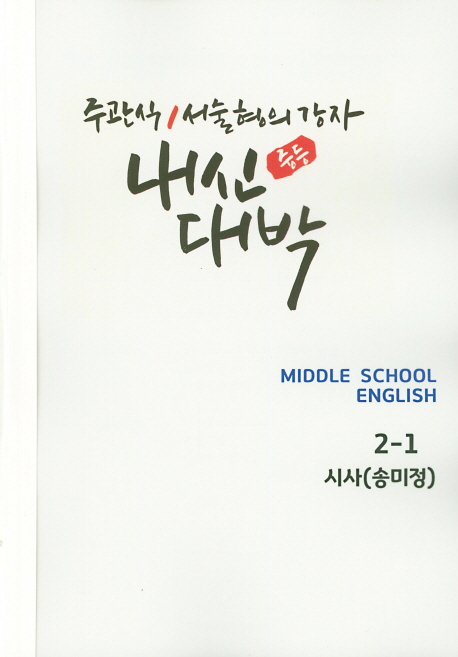 주관식/서술형의 강자
내신 중등
대박
MIDDLE SCHOOL
ENGLISH
2-1
시사(송미정)